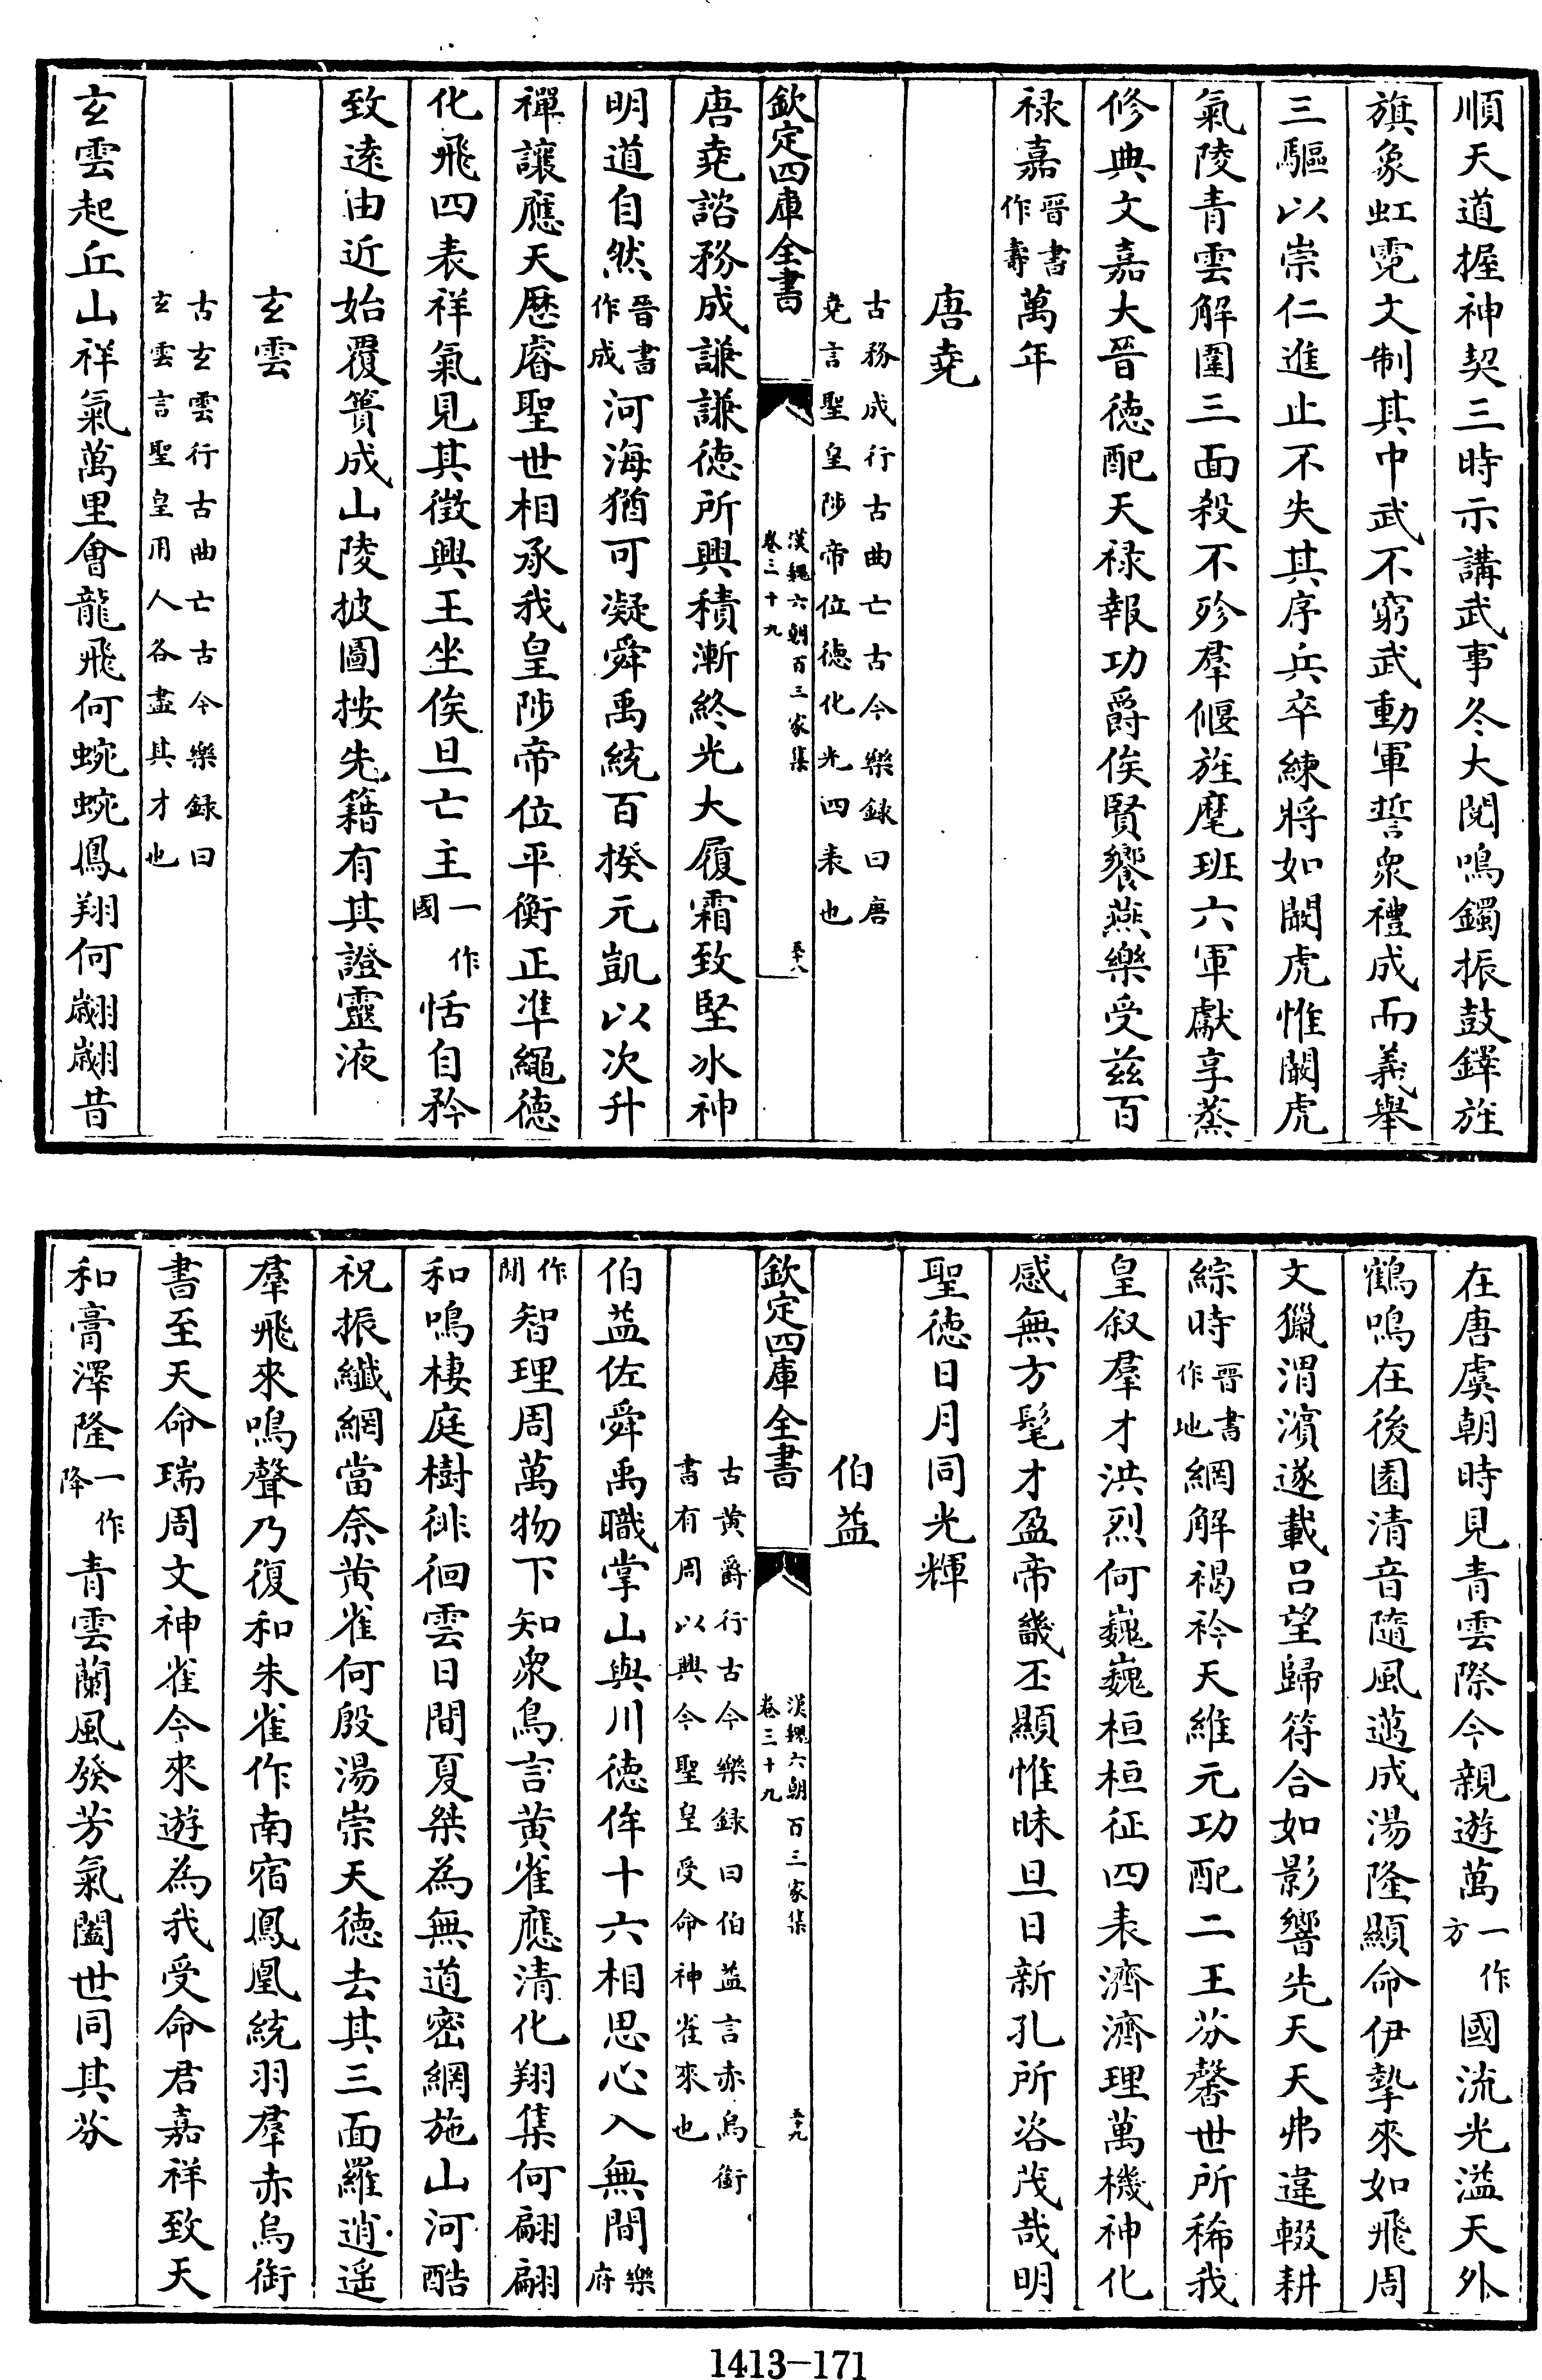 順天道握神契三時示講武事冬大閱鳴鐲振鼓鐸旌
旗象虹霓文制其中武不窮武動軍誓衆禮成而義舉
三驅以崇仁進止不失其序兵卒練將如闞虎惟闞虎
氣陵青雲解圍三面殺不殄羣偃旌麾班六軍獻享蒸
修典文嘉大晉徳配天禄報功爵俟賢饗燕樂受兹百
禄嘉晉書作壽萬年
唐堯
古務成行古曲亡古今樂録曰唐
堯言聖皇陟帝位徳化光四表也
欽定四庫全書
漢魏六朝百三家集
卷三十九
五十八
唐堯諮務成謙謙徳所興積漸終光大履霜致堅冰神
明道自然晉書作成河海猶可凝舜禹統百揆元凱以次升
禪讓應天厯睿聖世相承我皇陟帝位平衡正凖繩徳
化飛四表祥氣見其徵興王坐俟旦亡主一作國恬自矜
致逺由近始覆簣成山陵披圖按先籍有其證靈液
玄雲
古玄雲行古曲亡古今樂録曰
玄雲言聖皇用人各盡其才也
玄雲起丘山祥氣萬里會龍飛何蜿蜿鳳翔何翽翽昔
在唐虞朝時見青雲際今親遊萬一作方國流光溢天外
鶴鳴在後園清音隨風邁成湯隆顯命伊摯來如飛周
文獵渭濱遂載吕望歸符合如影響先天天弗違輟耕
綜時晉書作地網解褐衿天維元功配二王芬馨世所稀我
皇叙羣才洪烈何巍巍桓桓征四表濟濟理萬機神化
感無方髦才盈帝畿丕顯惟昧旦日新孔所咨茂哉明
聖徳日月同光輝
伯益
欽定四庫全書
漢魏六朝百三家集
卷三十九
五十九
古黄爵行古今樂録曰伯益言赤烏銜
書有周以興今聖皇受命神雀來也
伯益佐舜禹職掌山與川徳侔十六相思心入無間樂府
作閒智理周萬物下知衆鳥言黄雀應清化翔集何翩翩
和鳴棲庭樹徘徊雲日間夏桀為無道密網施山河酷
祝振纖網當奈黄雀何殷湯崇天徳去其三面羅逍遥
羣飛來鳴聲乃復和朱雀作南宿鳳凰統羽羣赤烏銜
書至天命瑞周文神雀今來遊為我受命君嘉祥致天
和膏澤隆一作降青雲蘭風發芳氣闔世同其芬
1413—171